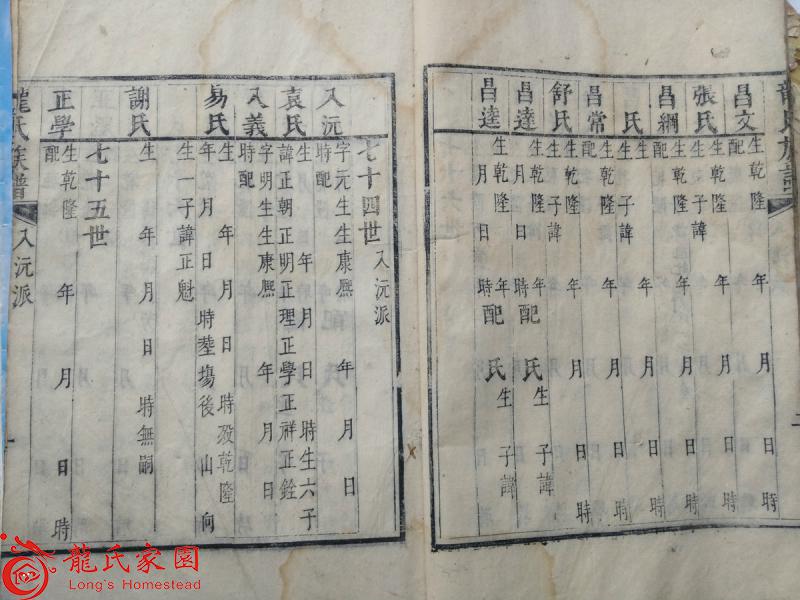 龍氏族譜
昌文 生乾隆 年 月 日 時
配
張氏 生 年 月 日 時
生 子諱
昌綱 生乾隆 年 月 日 時
配
氏 生 年 月 日 時
生 子諱
昌常 生乾隆 年 月 日 時
配
舒氏 生 年 月 日 時
生 子諱
昌達 生乾隆 年
月 日 時配 氏生 子諱
昌逵 生乾隆 年
月 日 時配 氏生 子諱
七十四世 入沅派
入沅 字元生生康熙 年 月 日
時配
袁氏 生 年 月 日 時生六子
諱正朝正明正理正學正祥正銓
入義 字明生生康熙 年 月 日
時配
易氏 生 年 月 日 時歿乾隆
年 月 日 時塟塲後山 向
生一子諱正魁
謝氏 生 年 月 日 時無嗣
七十五世
正學 生乾隆 年 月 日 時
配
龍氏族譜 入沅派
龍氏家園
Long's Homestead